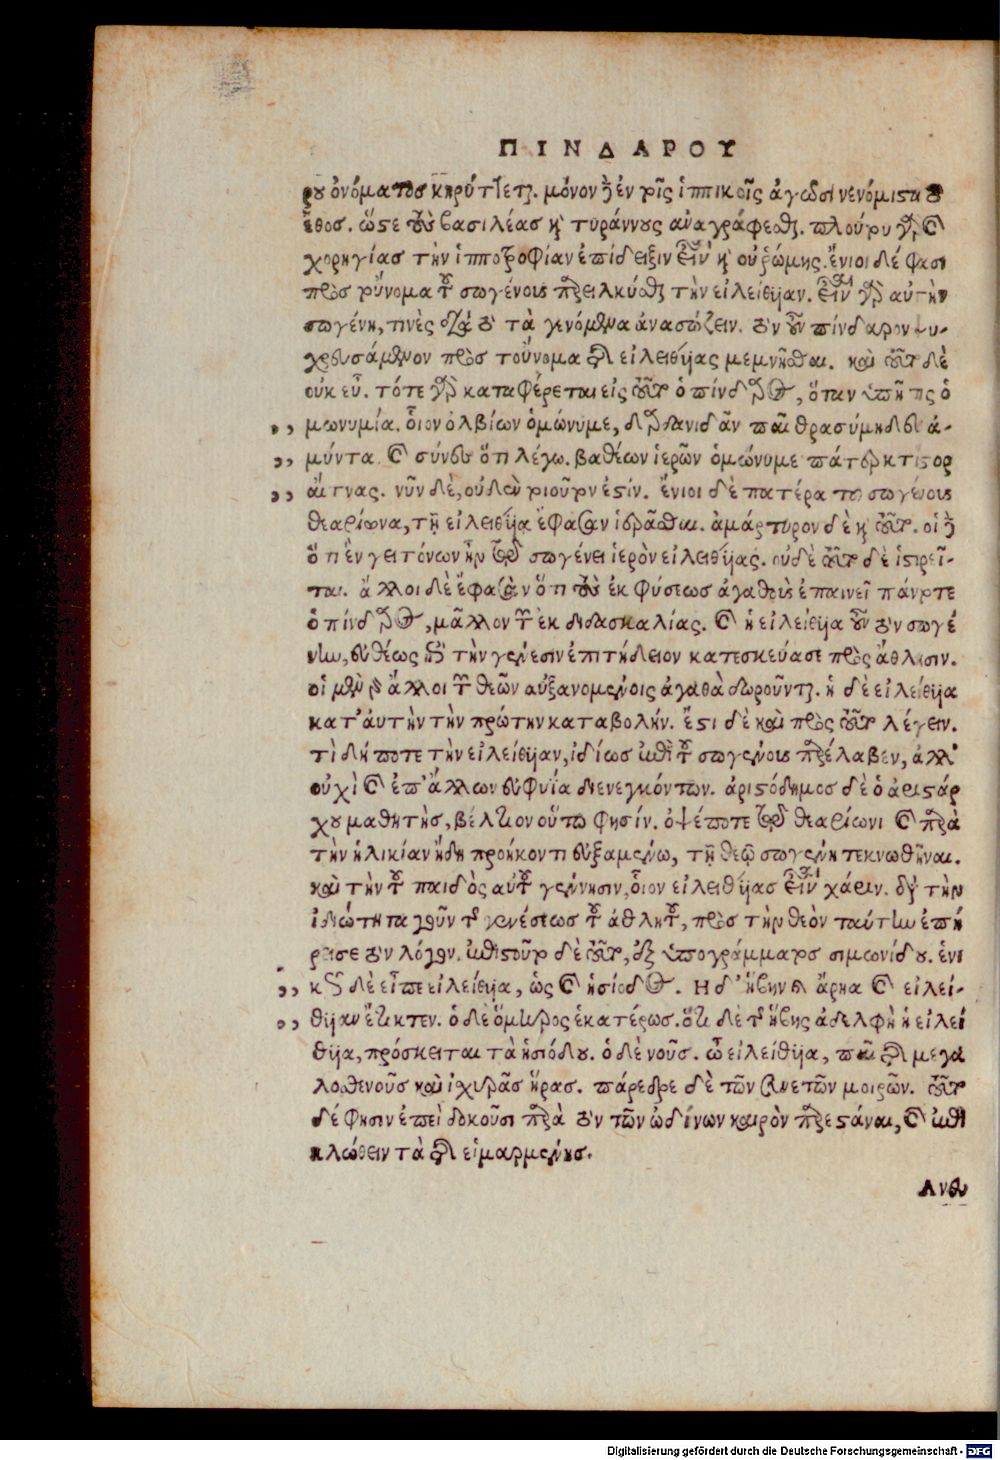 ΠΙΝΔΑΡΟΥ
ρου ὀνόματος κηρύττεται. μόνον δὲ ἐν τοῖς ἱππικοῖς ἀγῶσι νενόμισται τὸ
ἔθος. ὥστε τοὺς βασιλέας καὶ τυράννους ἀναγράφεσθαι. πλούτου γὰρ καὶ
χορηγίας τὴν ἱπποτροφίαν ἐπίδειξιν εἶναι καὶ οὐ ῥώμης. ἔνιοι δέ φασι
πρὸς τοὔνομα τοῦ σωγένους παρειλκύσθαι τὴν εἰλείθυιαν. εἶναι γὰρ αὐτὴν
σωγένη, τινὲς διὰ τὸ τὰ γινόμενα ἀνασώζειν. τὸν οὖν πίνδαρον
χρησάμενον πρὸς τοὔνομα τῆς εἰλειθυίας μεμνῆσθαι. καὶ τοῦτο δὲ
οὐκ εὖ. τότε γὰρ καταφέρεται εἰς τοῦτο ὁ πίνδαρος, ὅταν ὑπῇ τις ὁ-
,, μωνυμία. οἷον ὀλβίων ὁμώνυμε, δαρδανιδᾶν παῖ θρασύμηδες ἀ-
,, μύντα. καὶ σύνες ὅτι λέγω. βαθέων ἱερῶν ὁμώνυμε πάτερ κτίστορ
,, αἴτνας. νῦν δὲ, οὐδὲν τοιοῦτόν ἐστιν. ἔνιοι δὲ πατέρα τοῦ σωγένους
θεαρίωνα, τῇ εἰλειθυίᾳ ἔφασαν ἱδρᾶσθαι. ἀμάρτυρον δὲ καὶ τοῦτο. οἱ δὲ
ὅτι ἐν γειτόνων ἦν τῷ σωγένει ἱερὸν εἰλειθυίας. οὐδὲ τοῦτο δὲ ἱστορεῖ-
ται. ἄλλοι δὲ ἔφασαν ὅτι τοὺς ἐκ φύσεως ἀγαθοὺς ἐπαινεῖ πάντοτε
ὁ πίνδαρος, μᾶλλον τῶν ἐκ διδασκαλίας. καὶ ἡ εἰλείθυια οὖν τὸν σωγέ
νην, εὐθέως κατὰ τὴν γένεσιν ἐπιτήδειον κατεσκεύασε πρὸς ἄθλησιν.
οἱ μὲν γὰρ ἄλλοι τῶν θεῶν αὐξανομένοις ἀγαθὰ δωροῦνται. ἡ δὲ εἰλείθυια
κατ' αὐτὴν τὴν πρώτην καταβολήν. ἔστι δὲ καὶ πρὸς τοῦτο λέγειν.
τί δήποτε τὴν εἰλείθυιαν, ἰδίως ἐπὶ τοῦ σωγένους παρέλαβεν, ἀλλ'
οὐχὶ καὶ ἐπ' ἄλλων εὐφυΐᾳ διενεγκόντων. ἀριστόδημος δὲ ὁ ἀριστάρ
χου μαθητὴς, βέλτιον οὕτω φησίν. ὀψέ ποτε τῷ θεαρίωνι καὶ παρὰ
τὴν ἡλικίαν ἤδη προήκοντι εὐξαμένῳ, τῇ θεῷ σωγένη τεκνωθῆναι.
καὶ τὴν τοῦ παιδὸς αὐτοῦ γέννησιν, οἷον εἰλειθυίας εἶναι χάριν. διὰ τὴν
ἰδιώτητα γοῦν τῆς γενέσεως τοῦ ἀθλητοῦ, πρὸς τὴν θεὸν ταύτην ἐπή
ρεισε τὸν λόγον. ἐπιστοῦτο δὲ τοῦτο, ἐξ ἐπιγράμματος σιμωνίδου. ἑνι
,, κῶς δὲ εἶπε εἰλείθυια, ὡς καὶ ἡσίοδος. Ἡ δ' ἥβην καὶ ἄρηα καὶ εἰλεί-
,, θυιαν ἔτικτεν. ὁ δὲ ὅμηρος ἑκατέρως. ὅτι δὲ τῆς ἥβης ἀδελφὴ ἡ εἰλεί
θυια, πρόσκειται τὰ ἡσιόδου. ὁ δὲ νοῦς. ὦ εἰλείθυια, παῖ τῆς μεγα
λοσθενοῦς καὶ ἰσχυρᾶς ἥρας. πάρεδρε δὲ τῶν συνετῶν μοιρῶν. τοῦτο
δέ φησιν ἐπεὶ δοκοῦσι παρὰ τὸν τῶν ὠδίνων καιρὸν παρεστάναι, καὶ ἐπι
κλώθειν τὰ τῆς εἱμαρμένης.
Ανευ
Digitalisierung gefördert durch die Deutsche Forschungsgemeinschaft - DFG